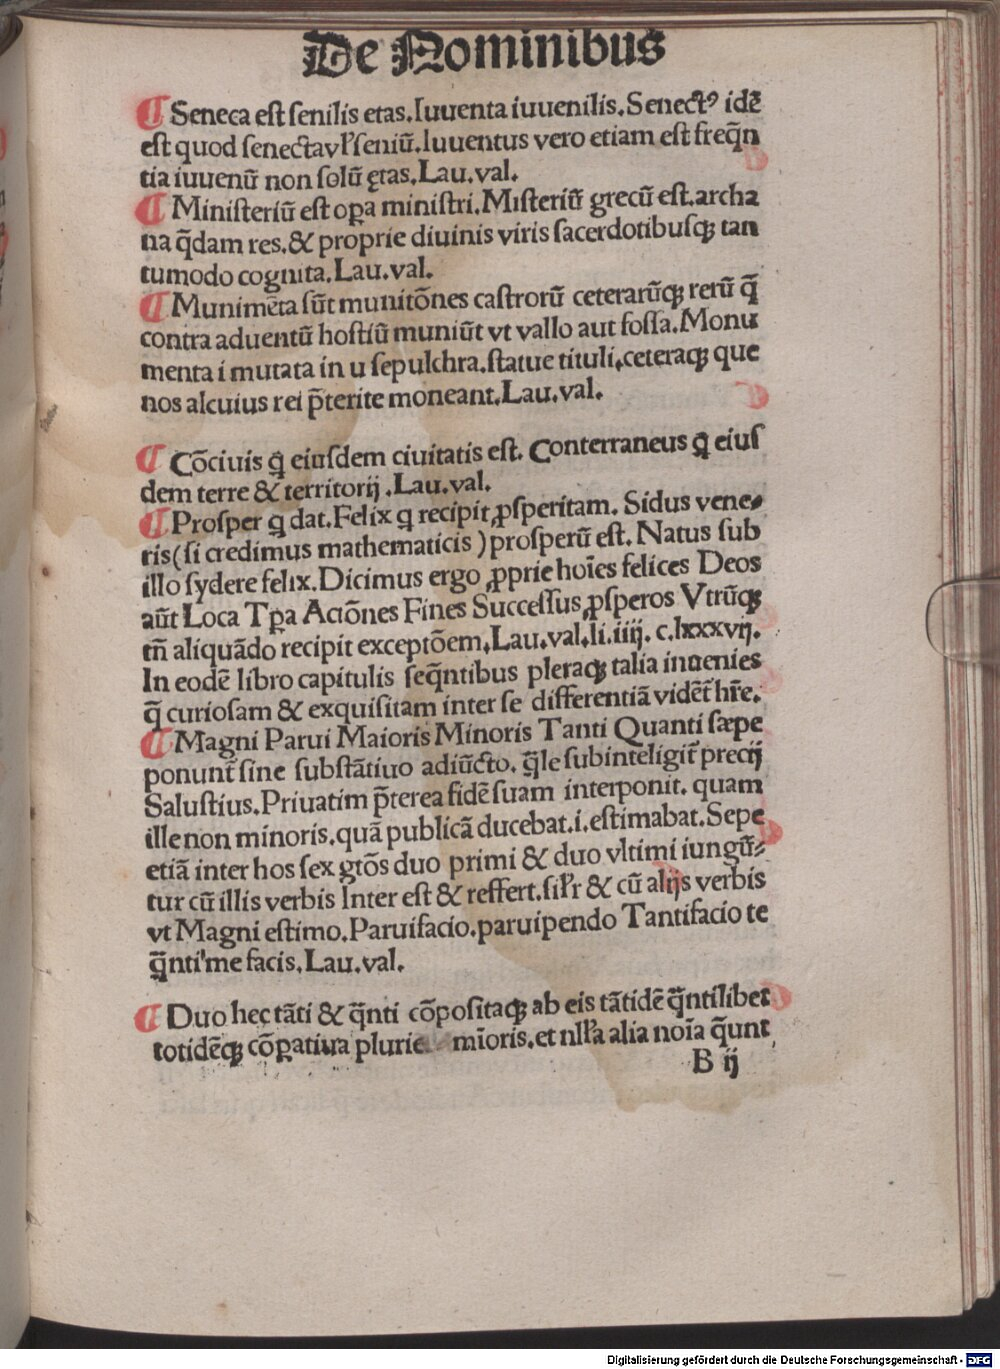 De Nominibus
¶ Seneca est senilis etas. Iuuenta iuuenilis. Senectꝰ idē
est quod senecta vl' seniū. Iuuentus vero etiam est freq̄n
tia iuuenū non solū ętas. Lau. val.
¶ Ministeriū est oꝑa ministri. Misteriū grecū est. archa
na q̄dam res. & proprie diuinis viris sacerdotibusqꝫ tan
tumodo cognita. Lau. val.
¶ Munimēta sūt munitōnes castrorū ceterarūqꝫ rerū q̄
contra aduentū hostiū muniūt vt vallo aut fossa. Monu
menta i mutata in u sepulchra. statue tituli. ceteraqꝫ que
nos alcuius rei p̄terite moneant. Lau. val.
¶ Cōciuis ꝗ eiusdem ciuitatis est. Conterraneus ꝗ eius
dem terre & territorij . Lau. val.
¶ Prosper ꝗ dat. Felix ꝗ recipit ꝓsperitam. Sidus vene
ris (si credimus mathematicis ) prosperū est. Natus sub
illo sydere felix. Dicimus ergo ꝓprie hoīes felices Deos
aūt Loca Tꝑa Actōnes Fines Successus ꝓsperos Vtrūqꝫ
tn̄ aliquādo recipit exceptōem. Lau. val. li. iiij. c. lxxxvij.
In eodē libro capitulis seq̄ntibus pleraqꝫ talia inuenies
q̄ curiosam & exquisitam inter se differentiā vidēt hr̄e.
¶ Magni Parui Maioris Minoris Tanti Quanti sæpe
ponunt̄ sine substātiuo adiūcto. q̄le subinteligit̄ precij
Salustius. Priuatim p̄terea fidē suam interponit. quam
ille non minoris. quā publicā ducebat. i. estimabat. Sepe
etiā inter hos sex gtōs duo primi & duo vltimi iungū
tur cū illis verbis Inter est & reffert. sil'r & cū alijs verbis
vt Magni estimo. Paruifacio. paruipendo Tantifacio te
q̄nti'me facis. Lau. val.
¶ Duo hec tāti & q̄nti cōpositaqꝫ ab eis tātidē q̄ntilibet
totidēqꝫ cōꝑatiua plurie mīoris. et nll'a alia noīa q̄unt
B ij
Digitalisierung gefördert durch die Deutsche Forschungsgemeinschaft - DFG